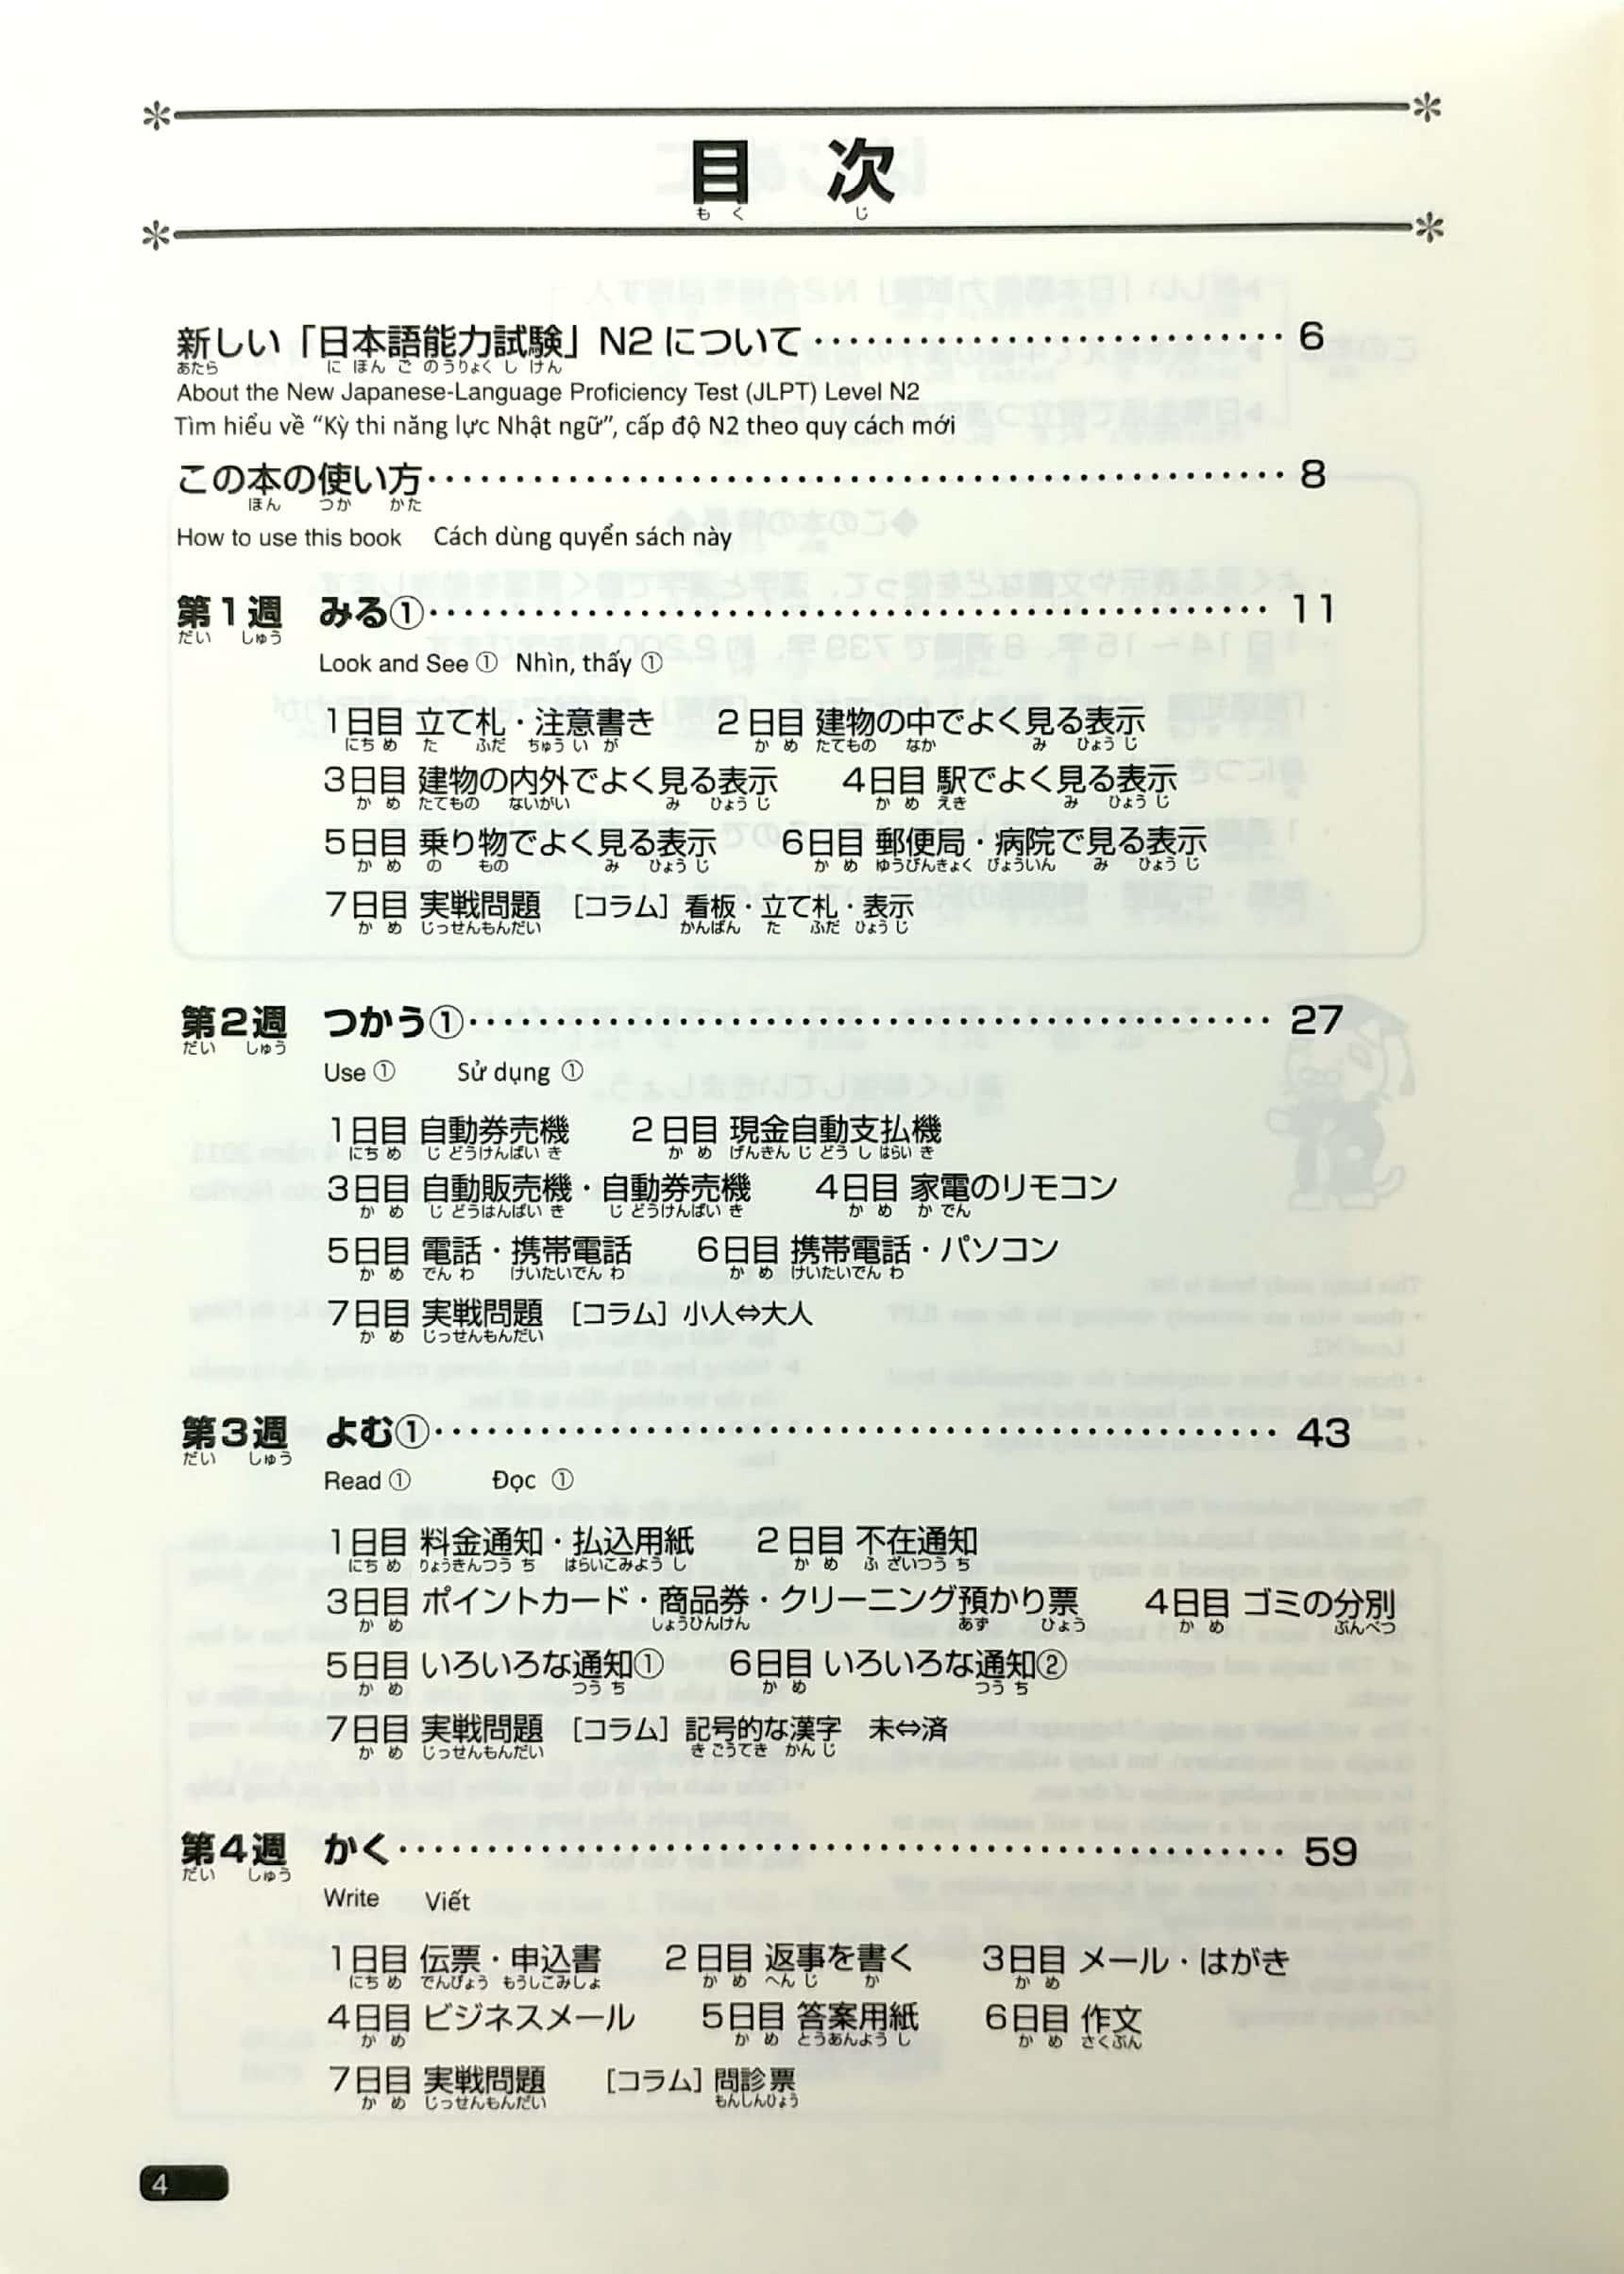 目次
もく じ
新しい「日本語能力試験」N2 について 6
あたら に ほん ご のうりょく し けん
About the New Japanese-Language Proficiency Test (JLPT) Level N2
Tìm hiểu về “Kỳ thi năng lực Nhật ngữ”, cấp độ N2 theo quy cách mới
この本の使い方 8
ほん つか かた
How to use this book Cách dùng quyển sách này
第1週 みる① 11
だい しゅう
Look and See ① Nhìn, thấy ①
1日目 立て札・注意書き 2日目 建物の中でよく見る表示
にち め た ふだ ちゅう い が か め たてもの なか み ひょう じ
3日目 建物の内外でよく見る表示 4日目 駅でよく見る表示
か め たてもの ないがい み ひょう じ か め えき み ひょう じ
5日目 乗り物でよく見る表示 6日目 郵便局・病院で見る表示
か め の もの み ひょう じ か め ゆうびんきょく びょういん み ひょう じ
7日目 実戦問題 [コラム] 看板・立て札・表示
か め じっせんもんだい かんばん た ふだ ひょう じ
第2週 つかう① 27
だい しゅう
Use ① Sử dụng ①
1日目 自動券売機 2日目 現金自動支払機
にち め じ どうけんばい き か め げんきん じ どう し はらい き
3日目 自動販売機・自動券売機 4日目 家電のリモコン
か め じ どうはんばい き じ どうけんばい き か め か でん
5日目 電話・携帯電話 6日目 携帯電話・パソコン
か め でん わ けいたいでん わ か め けいたいでん わ
7日目 実戦問題 [コラム] 小人⇔大人
か め じっせんもんだい
第3週 よむ① 43
だい しゅう
Read ① Đọc ①
1日目 料金通知・払込用紙 2日目 不在通知
にち め りょうきんつう ち はらいこみよう し か め ふ ざいつう ち
3日目 ポイントカード・商品券・クリーニング預かり票 4日目 ゴミの分別
か め しょうひんけん あず ひょう か め ぶんべつ
5日目 いろいろな通知① 6日目 いろいろな通知②
か め つう ち か め つう ち
7日目 実戦問題 [コラム] 記号的な漢字 未⇔済
か め じっせんもんだい き ごうてき かん じ
第4週 かく 59
だい しゅう
Write Viết
1日目 伝票・申込書 2日目 返事を書く 3日目 メール・はがき
にち め でんぴょう もうしこみしょ か め へん じ か か め
4日目 ビジネスメール 5日目 答案用紙 6日目 作文
か め か め とうあんよう し か め さくぶん
7日目 実戦問題 [コラム] 問診票
か め じっせんもんだい もんしんひょう
4